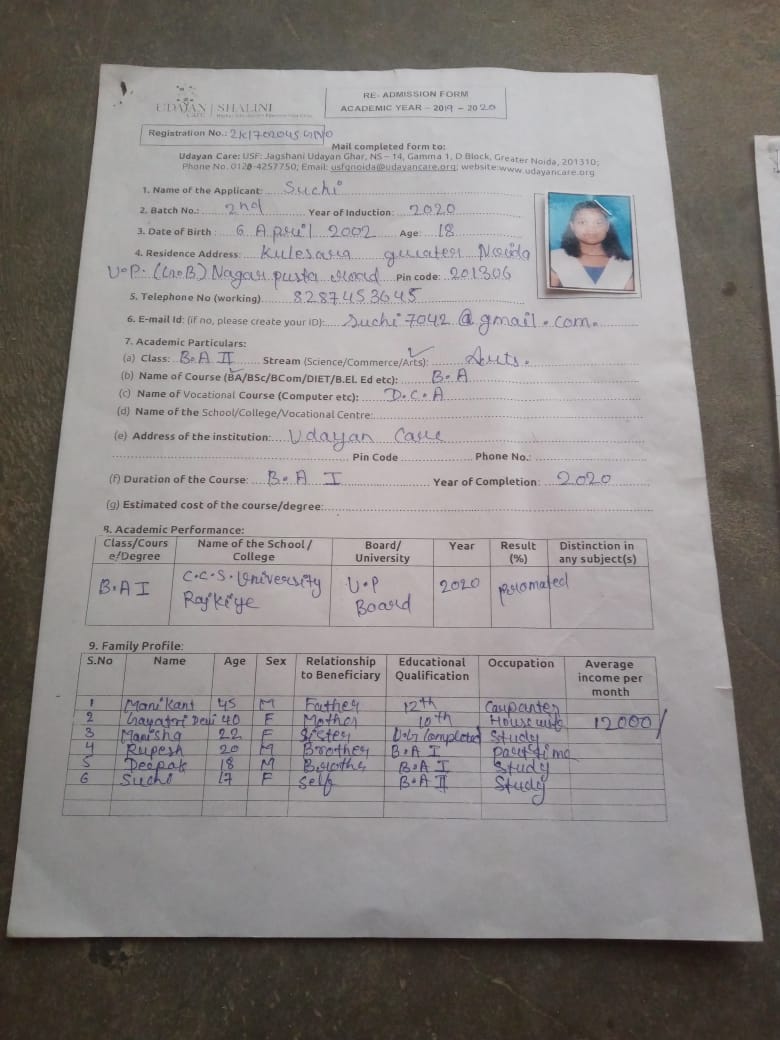 UDAYAN | SHALINI
CARE
RE- ADMISSION FORM
ACADEMIC YEAR – 2019 – 2020
Registration No.:
Mail completed form to:
Udayan Care: USF: Jagshani Udayan Ghar, NS – 14, Gamma 1, D Block, Greater Noida, 201310;
Phone No. 0120-4257750; Email: usfgnoida@udayancare.org; website:www.udayancare.org
1. Name of the Applicant: Suchi
2. Batch No.: 2nd Year of Induction: 2020
3. Date of Birth: 6 April 2002 Age: 18
4. Residence Address: Kulesara greater Noida
U.P. (G.B) Nagar pusta road Pin code: 201306
5. Telephone No (working) 8287453645
6. E-mail Id: (if no, please create your ID): Suchi7042@gmail.com.
7. Academic Particulars:
(a) Class: B.A II Stream (Science/Commerce/Arts): Arts.
(b) Name of Course (BA/BSc/BCom/DIET/B.EL. Ed etc): B.A
(c) Name of Vocational Course (Computer etc): D.C.A
(d) Name of the School/College/Vocational Centre:
(e) Address of the institution: Udayan Care
Pin Code Phone No.:
(f) Duration of the Course: B.A I Year of Completion: 2020
(g) Estimated cost of the course/degree:
8. Academic Performance:
Class/Cours Name of the School / Board/ Year Result Distinction in
e/Degree College University (%) any subject(s)
B.A I C.C.S. University U.P 2020 Promated
Rajkiye Board
9. Family Profile:
S.No Name Age Sex Relationship Educational Occupation Average
to Beneficiary Qualification income per
month
1 Manikant 45 M Father 12th Carpanter
2 Gayatri Devi 40 F Mother 10th Housewife 12000/
3 Manisha 22 F Sister U.G Completed Study
4 Rupesh 20 M Brother B.A I Part time
5 Deepak 18 M Brothe B.A I Study
6 Suchi 17 F Self B.A II Study